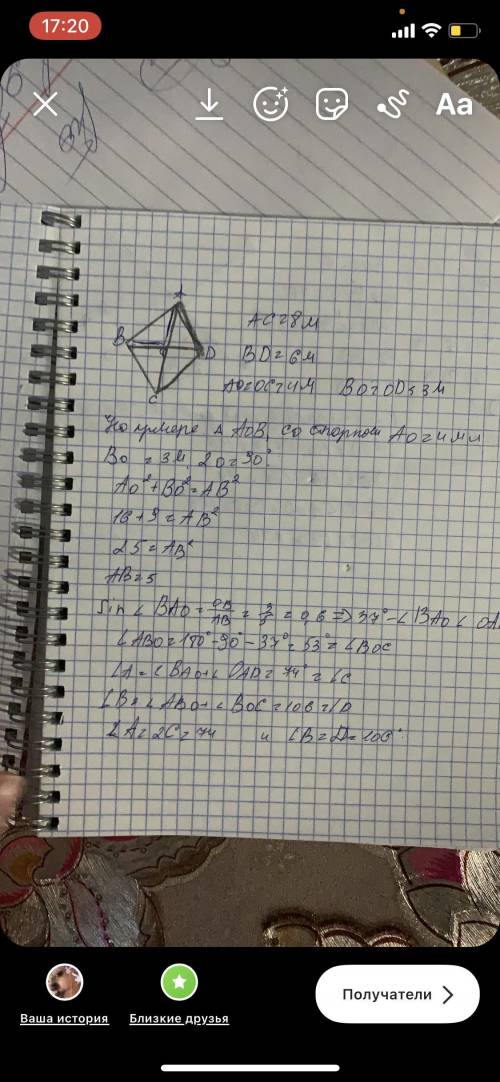 17:20
Aa
A
B
D
C
AC = 8 м
BD = 6 м
AO = OC = 4 м BO = OD = 3 м
AOB, со сторонам AO = 4 м и
BO = 3 м, ∠O = 90°.
AO² + BO² = AB²
16 + 9 = AB²
25 = AB²
AB = 5
Sin ∠BAO = OB/AB = 3/5 = 0,6 => 37° - ∠BAO ∠OA
∠ABO = 180° - 90° - 37° = 53° = ∠BOC
∠A = ∠BAO + ∠OAD = 74° = ∠C
∠B = ∠ABO + ∠BOC = 106 = ∠D
∠A = ∠C = 74 и ∠B = D = 106°.
Ваша история
Близкие друзья
Получатели